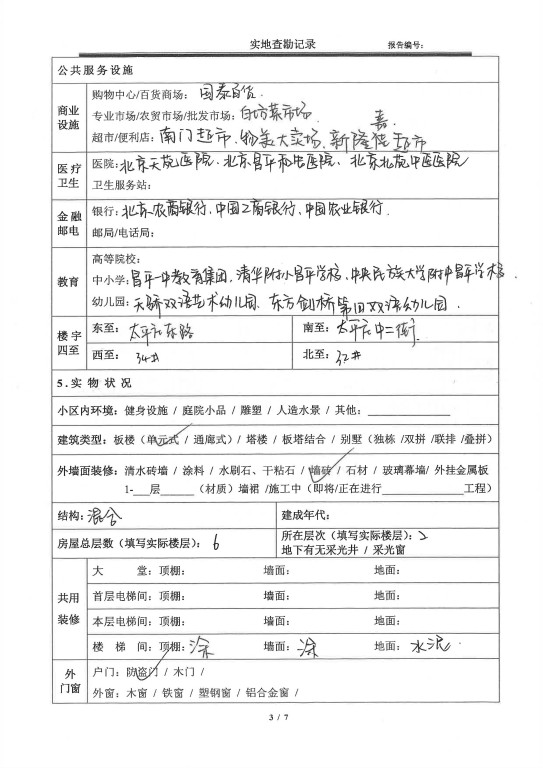 实地查勘记录 报告编号：
公共服务设施
商业设施
购物中心/百货商场：国泰百货
专业市场/农贸市场/批发市场：白坊菜市场
嘉
超市/便利店：南门超市、物美大卖场、新隆 超市
医疗卫生
医院：北京天苑医院、北京昌平 医院、北京北苑中医医院
卫生服务站：
金融邮电
银行：北京农商银行、中国工商银行、中国农业银行.
邮局/电话局：
教育
高等院校：
中小学：昌平一中教育集团、清华附小昌平学校、中央民族大学附中昌平学校.
幼儿园：天骄双语艺术幼儿园、东方剑桥第四双语幼儿园.
楼宇四至
东至：太平庄东路 南至：太平庄中二街
西至：34# 北至：32#
5.实物状况
小区内环境：健身设施 / 庭院小品 / 雕塑 / 人造水景 / 其他：
建筑类型：板楼（单元式 / 通廊式）/ 塔楼 / 板塔结合 / 别墅（独栋 /双拼 /联排 /叠拼）
外墙面装修：清水砖墙 / 涂料 / 水刷石、干粘石 / 墙砖 / 石材 / 玻璃幕墙/ 外挂金属板
1-___层______（材质）墙裙 /施工中（即将/正在进行____________工程）
结构：混合 建成年代：
房屋总层数（填写实际楼层）：6 所在层次（填写实际楼层）：2
地下有无采光井 / 采光窗
共用装修
大 堂：顶棚： 墙面： 地面：
首层电梯间：顶棚： 墙面： 地面：
本层电梯间：顶棚： 墙面： 地面：
楼 梯 间：顶棚：涂 墙面：涂 地面：水泥
外门窗
户门：防盗门 / 木门 /
外窗：木窗 / 铁窗 / 塑钢窗 / 铝合金窗 /
3 / 7